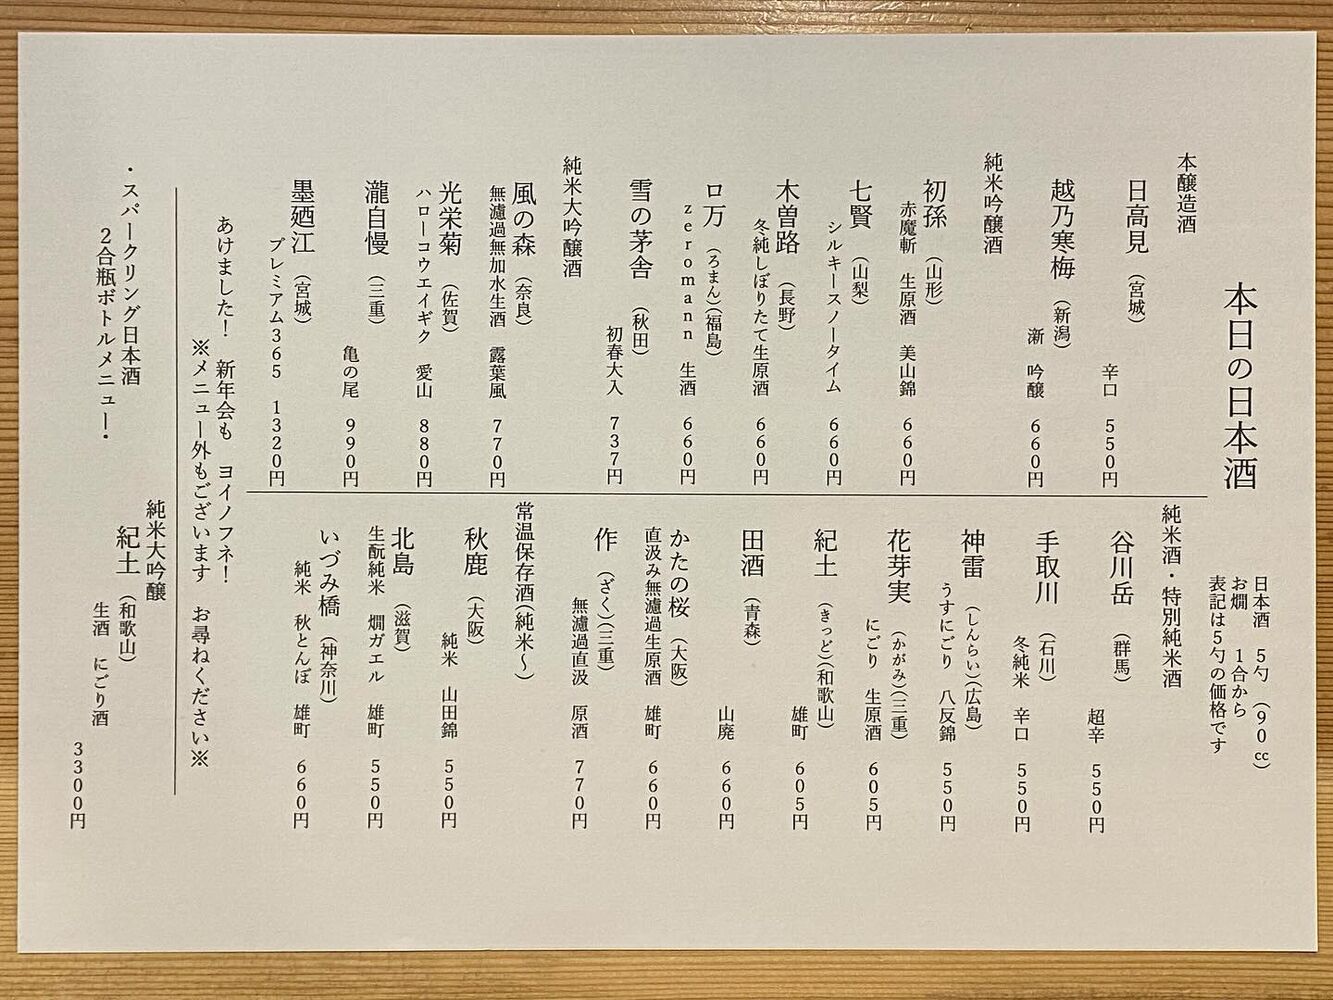 本日の日本酒
日本酒　5勺　（90㏄）
お燗　1合から
表記は5勺の価格です
本醸造酒
日高見（宮城）
辛口　550円
越乃寒梅（新潟）
漸　吟醸　660円
純米吟醸酒
初孫（山形）
赤魔斬　生原酒　美山錦　660円
七賢（山梨）
シルキースノータイム　660円
木曽路（長野）
冬純しぼりたて生原酒　660円
ロ万（ろまん）（福島）
zeromann　生酒　660円
雪の茅舎（秋田）
初春大入　737円
純米大吟醸酒
風の森（奈良）
無濾過無加水生酒　露葉風　770円
光栄菊（佐賀）
ハローコウエイギク　愛山　880円
瀧自慢（三重）
亀の尾　990円
墨廼江（宮城）
プレミアム365　1320円
純米酒・特別純米酒
谷川岳（群馬）
超辛　550円
手取川（石川）
冬純米　辛口　550円
神雷（しんらい）（広島）
うすにごり　八反錦　550円
花芽実（かがみ）（三重）
にごり　生原酒　605円
紀土（きっど）（和歌山）
雄町　605円
田酒（青森）
山廃　660円
かたの桜（大阪）
直汲み無濾過生原酒　雄町　660円
作（ざく）（三重）
無濾過直汲　原酒　770円
常温保存酒（純米～）
秋鹿（大阪）
純米　山田錦　550円
北島（滋賀）
生酛純米　燗ガエル　雄町　550円
いづみ橋（神奈川）
純米　秋とんぼ　雄町　660円
あけました！　新年会も　ヨイノフネ！
※メニュー外もございます　お尋ねください※
・スパークリング日本酒
2合瓶ボトルメニュー・
純米大吟醸
紀土（和歌山）
生酒　にごり酒
3300円